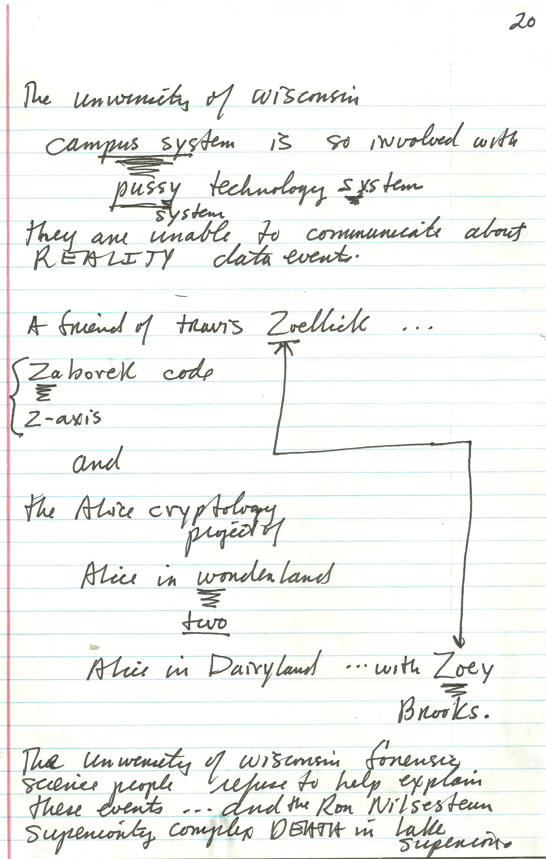 20
The University of Wisconsin
campus system is so involved with
pussy technology system
system
they are unable to communicate about
REALITY data events.
A friend of Travis Zoellick ...
Zaborek code
Z-axis
and
the Alice cryptology
project of
Alice in wonderland
two
Alice in Dairyland ... with Zoey
Brooks.
The University of Wisconsin forensic
science people refuse to help explain
these events ... and the Ron Nilsestuen
superiority complex DEATH in Lake
Superior.